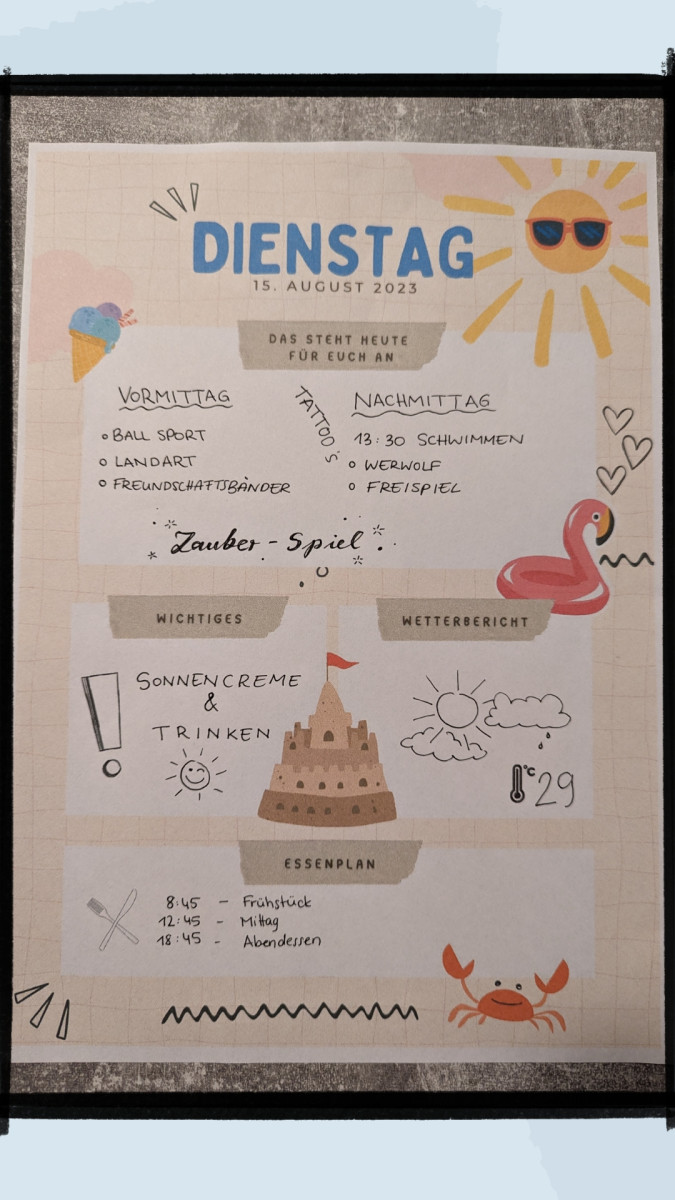 DIENSTAG
15. AUGUST 2023
DAS STEHT HEUTE
FÜR EUCH AN
VORMITTAG
BALL SPORT
LANDART
FREUNDSCHAFTSBÄNDER
TATTOOS
NACHMITTAG
13:30 SCHWIMMEN
WERWOLF
FREISPIEL
Zauber-Spiel
WICHTIGES
SONNENCREME
&
TRINKEN
WETTERBERICHT
°C 29
ESSENPLAN
8:45 - Frühstück
12:45 - Mittag
18:45 - Abendessen